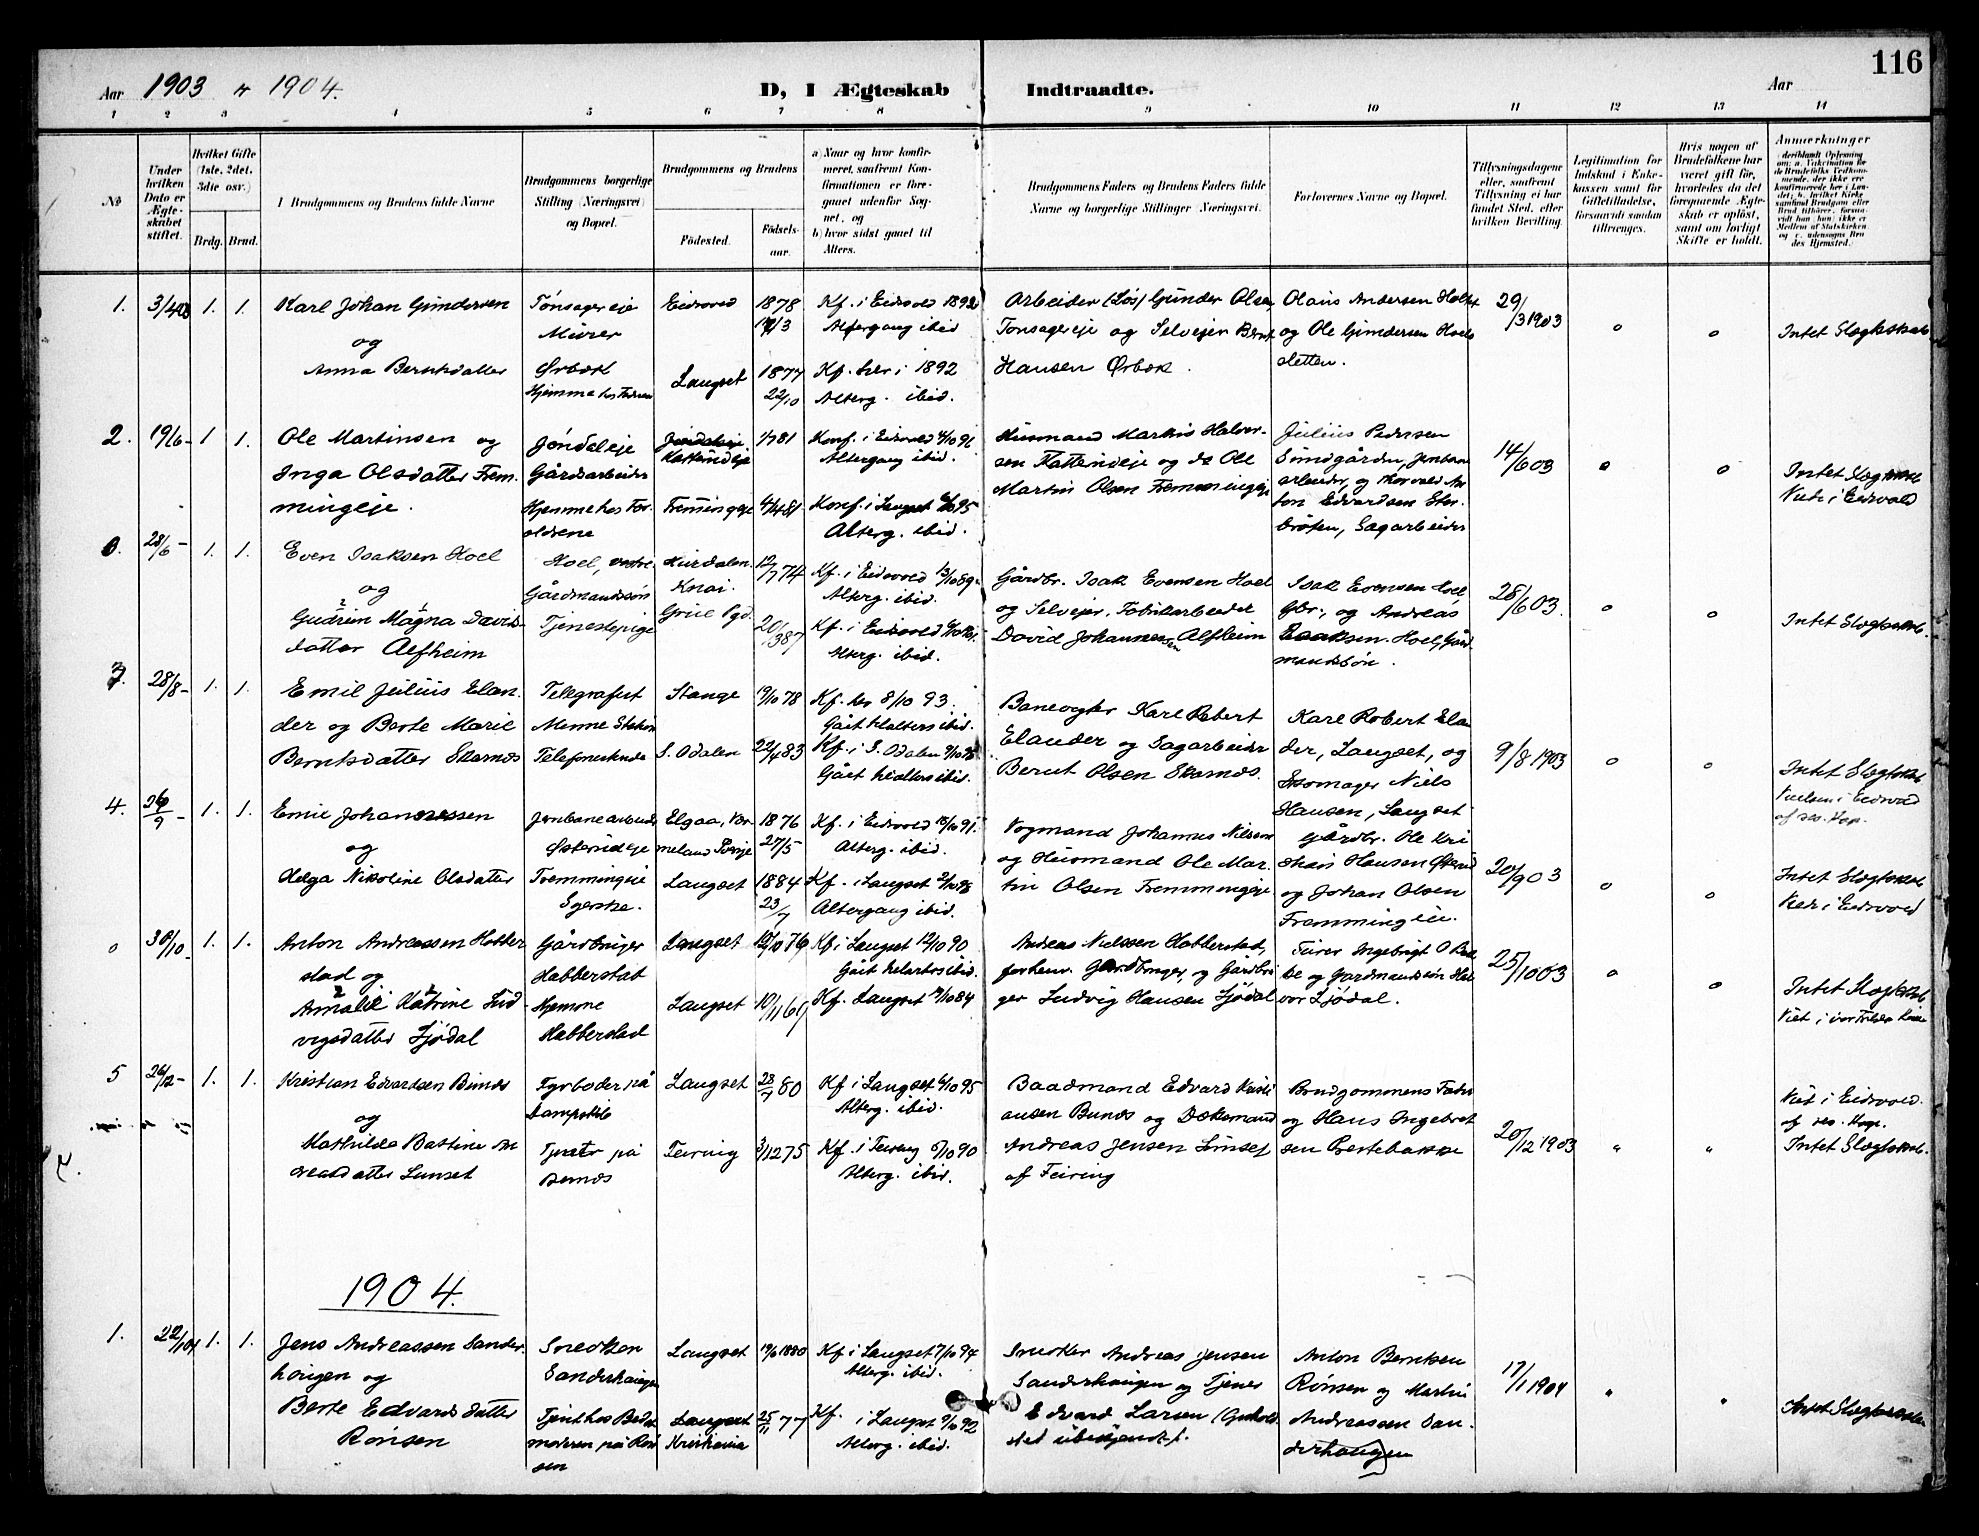 116
Aar 1903 & 1904.
D, I Ægteskab Indtraadte.
Aar
1 2 3 4 5 6 7 8 9 10 11 12 13 14
No
Under hvilken Dato er Ægteskabet stiftet.
Hvilket Gifte (1ste, 2det, 3die osv.)
Brdg. Brud.
I Brudgommens og Brudens fulde Navne
Brudgommens borgerlige Stilling (Næringsvei) og Bopæl.
Brudgommens og Brudens
Fødested.
Fødselsaar.
a) Naar og hvor konfirmeret, saafremt Konfirmationen er foregaaet udenfor Sognet, og
b) hvor sidst gaaet til Alters.
Brudgommens Faders og Brudens Faders fulde Navne og borgerlige Stillinger (Næringsvei.
Forlovernes Navne og Bopæl.
Tillysningsdagene eller, saafremt Tillysning ei har fundet Sted, efter hvilken Bevilling.
Legitimation for Indskud i Enkekassen samt for Giftetilladelse, forsaavidt saadan tiltrænges.
Hvis nogen af Brudefolkene har været gift før, hvorledes da det foregaaende Ægteskab er opløst, samt om lovligt Skifte er holdt.
Anmærkninger
1. 3/4 03 1. 1.
Karl Johan Gundersen
og
Anna Berntsdatter
Tønsagereje
Murer
Ørbæk
Hjemme hos Faderen
Eidsvold
Langset
1878
1877
22/10
Kf. i Eidsvold 1892
Altergang ibid
Kf. her i 1892
Alterg. ibid.
Arbeider (Løs) Gunder Olsen,
Tonsagereje og Selveier Bernt
Hansen Ørbæk.
Olaus Andersen
og Ole Gundersen Hoels
sletten.
29/3 1903
Intet Slegtskab
2. 19/6 - 1 1.
Ole Martinsen og
Inga Olsdatter Frem-
mingeje.
Jøndaleje
Gårdsarbeider
Hjemme hos For-
ældrene
Fremingeje
Konf. i Eidsvold
Altergang ibid.
Konf. i Langset
Alterg. ibid.
Husmand Martin Halvor-
sen Katterudeje og do Ole
Martin Olsen Fremmingeje
Julius Pedersen
Sundgården, Jernbane
arbeider, og Thorvald An-
ton Edvardsen Stor-
bråten, Sagarbeider
14/6 03
Intet Slegtskab
Viet i Eidsvold
28/6 - 1. 1.
Even Isaksen Hoel
og
Gudrun Magna David-
datter Alfheim
Hoel, vestre
Gårdmandssøn
Tjenestepige
Hurdalen.
Grue Pgd.
12/7 74
20/3 87
Kf. i Eidsvold
Alterg. ibid.
Kf. i Eidsvold
Alterg. ibid.
Gårdbr. Isak Evensen Hoel
og Selveier, Fabrikarbeider
David Johannessen Alfheim
Isak Evensen Hoel
Gbr., og Andreas
Isaksen Hoel, Gård
mandssøn.
28/6 03.
Intet Slegtskab.
3. 28/8 - 1. 1.
Emil Julius Elan-
der og Berte Marie
Berntsdatter Skarnes
Telegrafist
Minne Station
Telefonistinde
Stange
S. Odalen
19/10 78
22/4 83
Kf. her 8/10 93.
Gået til alters ibid.
Kf. i S. Odalen
Gået til alters ibid.
Banevogter Karl Robert
Elander og Sagarbeider
Bernt Olsen Skarnes.
Karl Robert Elan
der, Langset, og
Skomager Niels
Hansen, Langset
9/8 1903
Intet Slegtskab
Vielsen i Eidsvold
af res. Kap.
4. 26/9 - 1. 1.
Emil Johannessen
og
Helga Nikoline Olsdatter
Jernbanearbeider
Østerudeje
Fremmingeje
Syerske.
Elgaa, Ver-
meland Sverige
Langset
1876
27/5
1884
23/7
Kf. i Eidsvold
Alterg. ibid.
Kf. i Langset
Altergang ibid.
Vogmand Johannes Nilsen
og Husmand Ole Mar-
tin Olsen Fremmingeje
Gårdbr. Ole Kri
stian Hansen Østerud
og Johan Olsen
Fremmingeie.
20/9 03
Intet Slegtskab
Viet i Eidsvold
30/10 - 1. 1.
Anton Andreassen Habber
stad og
Amalie Katrine Lud-
vigsdatter Sjødal
Gårdbruger
Habberstad
Hjemme
Habberstad
Langset
Langset
Kf. i Langset 12/10 90
Gået til alters ibid.
Kf. Langset
Andreas Nielssen Habberstad,
forhenv. Gårdbruger, og Gårdbru
ger Ludvig Hansen Sjødal
og Gardmandssøn Hal
vor Sjødal.
25/10 03
Intet Slegtskab
5 26/12 - 1. 1.
Kristian Edvardsen Bunes
og
Mathilde Bastine An
dreasdatter Lunset
Fyrbøder på
Dampskib
Tjener på
Bunes
Langset
Feiring
28/7 80
3/12 75
Kf i Langset
Alterg. ibid.
Kf. i Feiring
Alterg. ibid.
Baadmand Edvard Kristi
ansen Bunes og Dæksmand
Andreas Jensen Lunset
af Feiring
Brudgommens Fader
og Hans Ingebret
sen Prestebakke
20/12 1903
Viet i Eidsvold.
af res. Kap.
Intet Slegtskab.
1904.
1. 22/1 04 1. 1.
Jens Andreassen Sander
haugen og
Berte Edvardsdatter
Rønsen
Snedker
Sanderhaugen
Langset
Langset
Kristiania
1880
25/11 77
Kf i Langset 7/10 94
Alterg. ibid.
Kf. i Langset
Alterg. ibid.
Snedker Andreas Jensen
Sanderhaugen og Tjener
Edvard Larsen (Ophold-
sted ubekjendt).
Anton Berntsen
Rønsen og Martin
Andreassen San-
derhaugen
17/1 1904
Intet Slegtskab